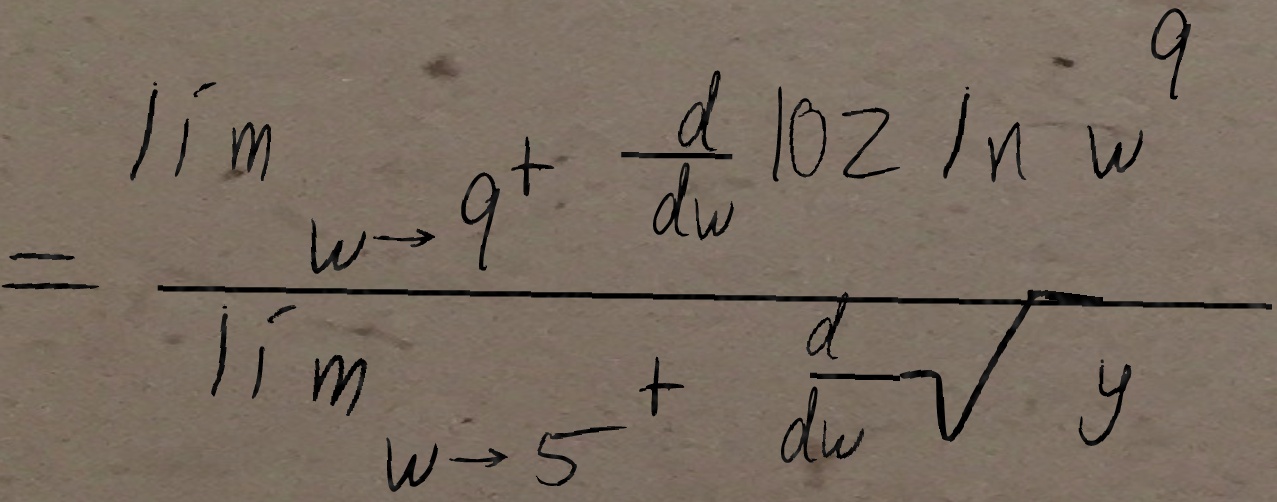 = \frac{\lim_{w \to 9^+} \frac{d}{dw} 102 \ln w^9}{\lim_{w \to 5^+} \frac{d}{dw} \sqrt{y}}